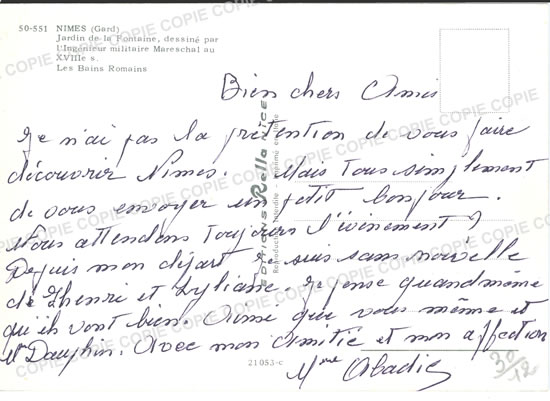 50-551 NIMES (Gard)
Jardin de la Fontaine, dessiné par
l'Ingénieur militaire Mareschal au
XVIIIe s.
Les Bains Romains
Bien chers Amis
Je n'ai pas la prétention de vous faire
découvrir Nimes. Mais tous simplement
de vous envoyer un petit bonjour.
Nous attendons toujours l'évènement ?
Depuis mon départ je suis sans nouvelle
de Henri et Lyliane. Je pense quandmême
qu'ils vont bien. Ainsi que vous même et
Mr Dauphin. Avec mon Amitié et mon affection
Mme Abadie
21053-c
30/12
Reproduction interdite - Imprimé en Italie
COPIE COPIE COPIE COPIE COPIE